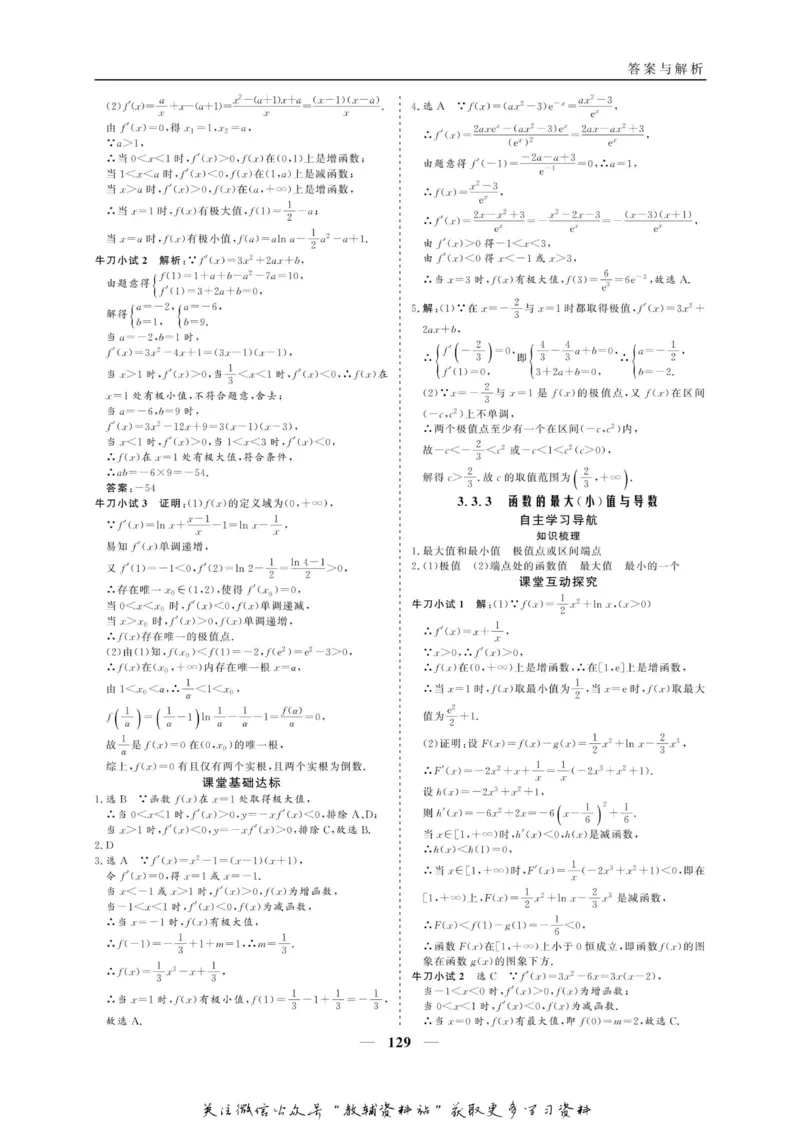 答案与解析
(2)f′(x)=a/x+x-(a+1)=(x²-(a+1)x+a)/x=((x-1)(x-a))/x.
由 f′(x)=0,得 x₁=1,x₂=a,
∵a>1,
∴当 0<x<1 时,f′(x)>0,f(x)在(0,1)上是增函数;
当 1<x<a 时,f′(x)<0,f(x)在(1,a)上是减函数;
当 x>a 时,f′(x)>0,f(x)在(a,+∞)上是增函数,
∴当 x=1 时,f(x)有极大值,f(1)=-1/2-a;
当 x=a 时,f(x)有极小值,f(a)=aln a-1/2a²-a+1.
牛刀小试 2 解析:∵f′(x)=3x²+2ax+b,
由题意得{f(1)=1+a+b-a²-7a=10, f′(1)=3+2a+b=0,
解得{a=-2, b=1, {a=-6, b=9.
当 a=-2,b=1 时,
f′(x)=3x²-4x+1=(3x-1)(x-1),
当 x>1 时,f′(x)>0,当 1/3<x<1 时,f′(x)<0,∴f(x)在
x=1 处有极小值,不符合题意,舍去;
当 a=-6,b=9 时,
f′(x)=3x²-12x+9=3(x-1)(x-3),
当 x<1 时,f′(x)>0,当 1<x<3 时,f′(x)<0,
∴f(x)在 x=1 处有极大值,符合条件,
∴ab=-6×9=-54.
答案:-54
牛刀小试 3 证明:(1)f(x)的定义域为(0,+∞),
∵f′(x)=ln x+(x-1)/x-1=ln x-1/x,
易知 f′(x)单调递增,
又 f′(1)=-1<0,f′(2)=ln 2-1/2=(ln 4-1)/2>0,
∴存在唯一 x₀∈(1,2),使得 f′(x₀)=0,
当 0<x<x₀ 时,f′(x)<0,f(x)单调递减,
当 x>x₀ 时,f′(x)>0,f(x)单调递增,
∴f(x)存在唯一的极值点.
(2)由(1)知,f(x₀)<f(1)=-2,f(e²)=e²-3>0,
∴f(x)在(x₀,+∞)内存在唯一根 x=α,
由 1<x₀<α,∴1/α<1<x₀,
f(1/α)=(1/α-1)ln 1/α-1/α-1=f(α)/α=0,
故 1/α 是 f(x)=0 在(0,x₀)的唯一根,
综上,f(x)=0 有且仅有两个实根,且两个实根为倒数.
课堂基础达标
1.选 B ∵函数 f(x)在 x=1 处取得极大值,
∴当 0<x<1 时,f′(x)>0,y=-xf′(x)<0,排除 A、D;
当 x>1 时,f′(x)<0,y=-xf′(x)>0,排除 C,故选 B.
2.D
3.选 A ∵f′(x)=x²-1=(x-1)(x+1),
令 f′(x)=0,得 x=1 或 x=-1.
当 x<-1 或 x>1 时,f′(x)>0,f(x)为增函数,
当-1<x<1 时,f′(x)<0,f(x)为减函数,
∴当 x=-1 时,f(x)有极大值,
∴f(-1)=-1/3+1+m=1,∴m=1/3.
∴f(x)=1/3x³-x+1/3,
∴当 x=1 时,f(x)有极小值,f(1)=1/3-1+1/3=-1/3,
故选 A.
4.选 A ∵f(x)=(ax²-3)e⁻ˣ=(ax²-3)/eˣ,
∴f′(x)=(2axeˣ-(ax²-3)eˣ)/(eˣ)²=(2ax-ax²+3)/eˣ,
由题意得 f′(-1)=(-2a-a+3)/e⁻¹=0,∴a=1,
∴f(x)=(x²-3)/eˣ,
∴f′(x)=(2x-x²+3)/eˣ=-(x²-2x-3)/eˣ=-((x-3)(x+1))/eˣ,
由 f′(x)>0 得-1<x<3,
由 f′(x)<0 得 x<-1 或 x>3,
∴当 x=3 时,f(x)有极大值,f(3)=6/e³=6e⁻³,故选 A.
5.解:(1)∵在 x=-2/3 与 x=1 时都取得极值,f′(x)=3x²+
2ax+b,
∴{f′(-2/3)=0, f′(1)=0, 即{4/3-4/3a+b=0, 3+2a+b=0, ∴{a=-1/2, b=-2.
(2)∵x=-2/3 与 x=1 是 f(x)的极值点,又 f(x)在区间
(-c,c²)上不单调,
∴两个极值点至少有一个在区间(-c,c²)内,
故-c<-2/3<c² 或-c<1<c²(c>0),
解得 c>2/3.故 c 的取值范围为(2/3,+∞).
3.3.3 函数的最大(小)值与导数
自主学习导航
知识梳理
1.最大值和最小值 极值点或区间端点
2.(1)极值 (2)端点处的函数值 最大值 最小的一个
课堂互动探究
牛刀小试 1 解:(1)∵f(x)=1/2x²+ln x,(x>0)
∴f′(x)=x+1/x,
∵x>0,∴f′(x)>0,
∴f(x)在(0,+∞)上是增函数,∴在[1,e]上是增函数,
∴当 x=1 时,f(x)取最小值为1/2,当 x=e 时,f(x)取最大
值为e²/2+1.
(2)证明:设 F(x)=f(x)-g(x)=1/2x²+ln x-2/3x³,
∴F′(x)=-2x²+x+1/x=1/x(-2x³+x²+1).
设 h(x)=-2x³+x²+1,
则 h′(x)=-6x²+2x=-6(x-1/6)²+1/6.
当 x∈[1,+∞)时,h′(x)<0,h(x)是减函数,
∴h(x)<h(1)=0,
∴当 x∈[1,+∞)时,F′(x)=1/x(-2x³+x²+1)<0,即在
[1,+∞)上,F(x)=1/2x²+ln x-2/3x³ 是减函数,
∴F(x)<f(1)-g(1)=-1/6<0,
∴函数 F(x)在[1,+∞)上小于 0 恒成立,即函数 f(x)的图
象在函数 g(x)的图象下方.
牛刀小试 2 选 C ∵f′(x)=3x²-6x=3x(x-2),
当-1<x<0 时,f′(x)>0,f(x)为增函数;
当 0<x<1 时,f′(x)<0,f(x)为减函数.
∴当 x=0 时,f(x)有最大值,即 f(0)=m=2,故选 C.
— 129 —
关注微信公众号“教辅资料站”获取更多学习资料